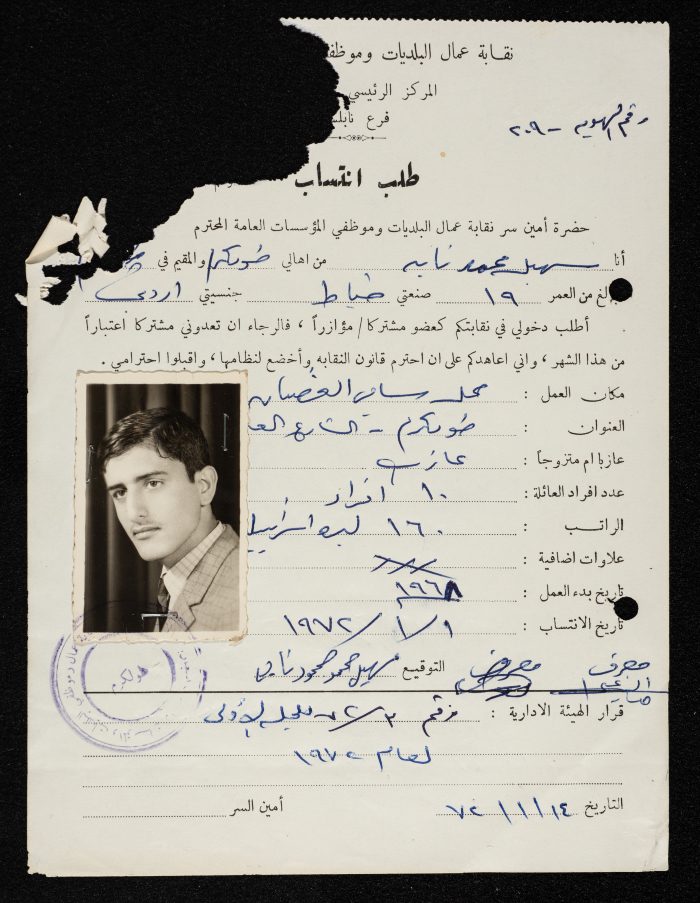 نقابة عمال البلديات وموظفي
المركز الرئيسي
فرع نابلس
رقم الهوية - ٢٠٩
طلب انتساب
حضرة أمين سر نقابة عمال البلديات وموظفي المؤسسات العامة المحترم
أنا سهيل محمد نايف من اهالي طولكرم والمقيم في
البالغ من العمر ١٩ صنعتي خياط جنسيتي اردني
أطلب دخولي في نقابتكم كعضو مشتركا/مؤازراً ، فالرجاء ان تعدوني مشتركا اعتباراً
من هذا الشهر ، واني اعاهدكم على ان احترم قانون النقابه وأخضع لنظامها ، واقبلوا احترامي .
مكان العمل : محل سامي
العنوان : طولكرم - الشارع
عازبا ام متزوجاً : عازب
عدد افراد العائلة : ١٠ افراد
الراتب : ١٦٠ ليره اسرائيلية
علاوات اضافية :
تاريخ بدء العمل : ١٩٦٨
تاريخ الانتساب : ١/١/١٩٧٢
التوقيع سهيل محمد محمود نايف
طولكرم
قرار الهيئة الادارية :
لعام ١٩٧٢
التاريخ ١٤/١/٧٢ أمين السر